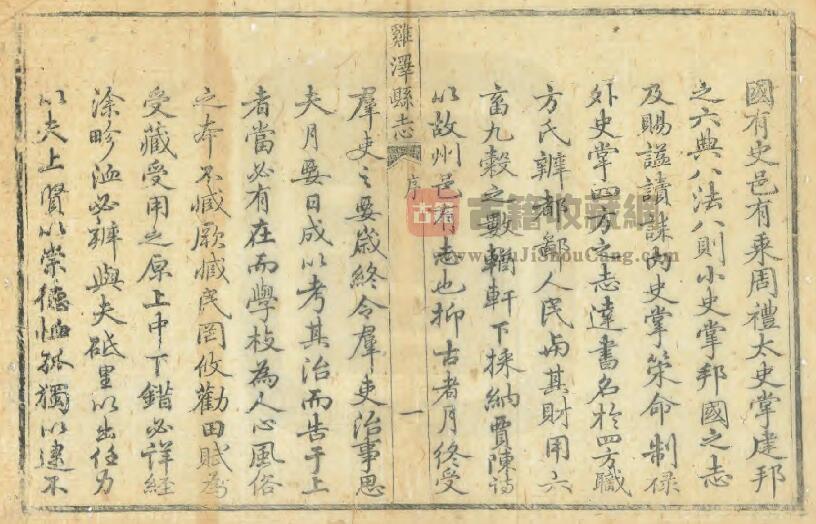 國有史邑有乘周禮太史掌建邦
之六典八法八則小史掌邦國之志
及賜諡讀誄內史掌策命制祿
外史掌四方之志達書名於四方職
方氏辨都鄙人民與其財用六
畜九穀之數輶軒下採納賈陳詩
以故州邑有志也抑古者月終受
雞澤縣志
序
一
羣吏之要歲終令羣吏治事思
夫月要日成以考其治而告于上
者當必有在而學校為人心風俗
之本不臧厥臧民罔攸勸田賦為
受藏受用之原上中下錯必詳經
涂畛洫必辨與夫砥里以出任力
以夫上賢以崇德恤孤獨以逮不
古籍
古籍收藏網
www.GuJiShouCang.com